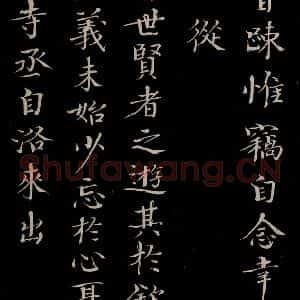 自踈惟竊自念幸
從
世賢者之遊其於飲
義未始少忘於心耳
寺丞自洛来出
Shufawang.CN